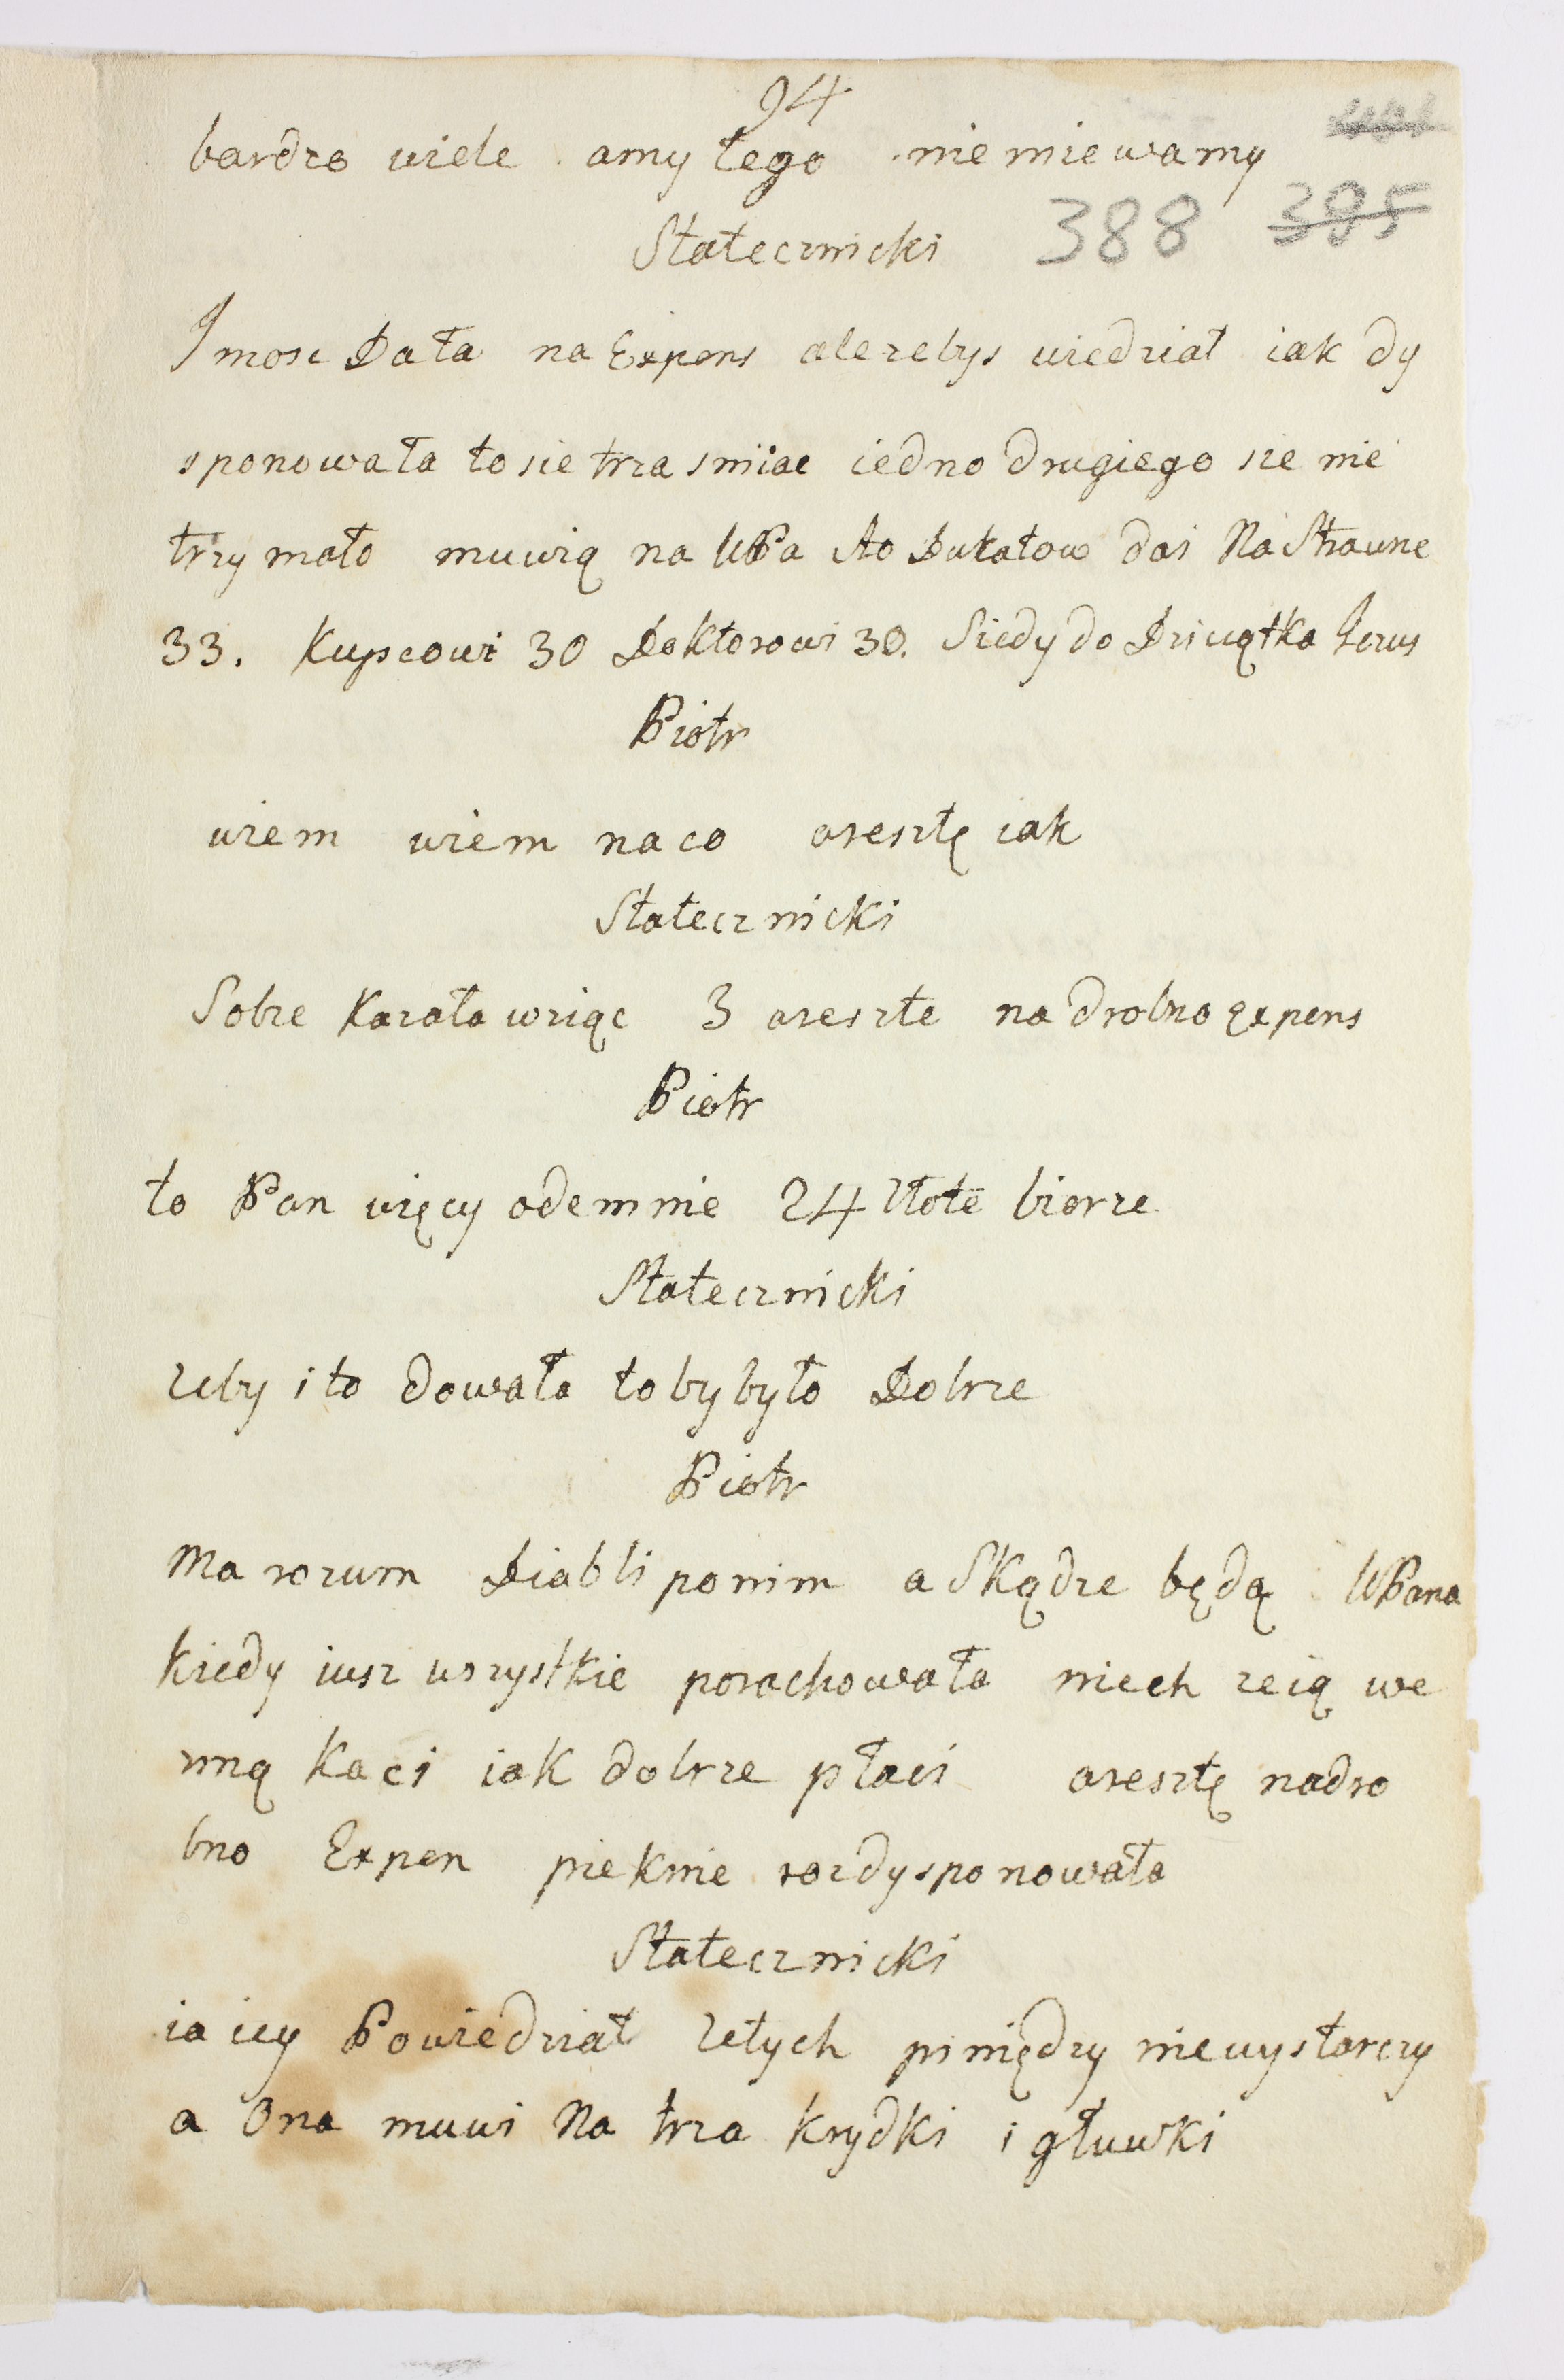 94
bardzo wiele amy tego niemiewamy
Statecznicki 388 395
Imosc Data na Expens alezebys wiedział iak dy
sponowała tosie trza smiac iedno drugiego sie nie
trzymało muwią na WPa sto Dukatow dai Na Strawne
33. Kupcowi 30 Doktorowi 30. Siedy do
Piotr
wiem wiem naco aresztę iak
Statecznicki
Sobie Kazała wziąc 3 areszte nadrobno Expens
Piotr
to Pan więcy odemnie 24 złote bierze
Statecznicki
zeby i to dowała toby było Dobrze
Piotr
Ma rozum Diabli ponim a Skądze będą WPana
kiedy iusz wszystkie porachowała niech zeią we
zmą kaci iak dobrze płaci aresztę nadro
bno Expen pieknie rozdysponowała
Statecznicki
ia iey Powiedział zetych piniędzy niewystarczy
a Ona muwi Na trza krydki i głuwki